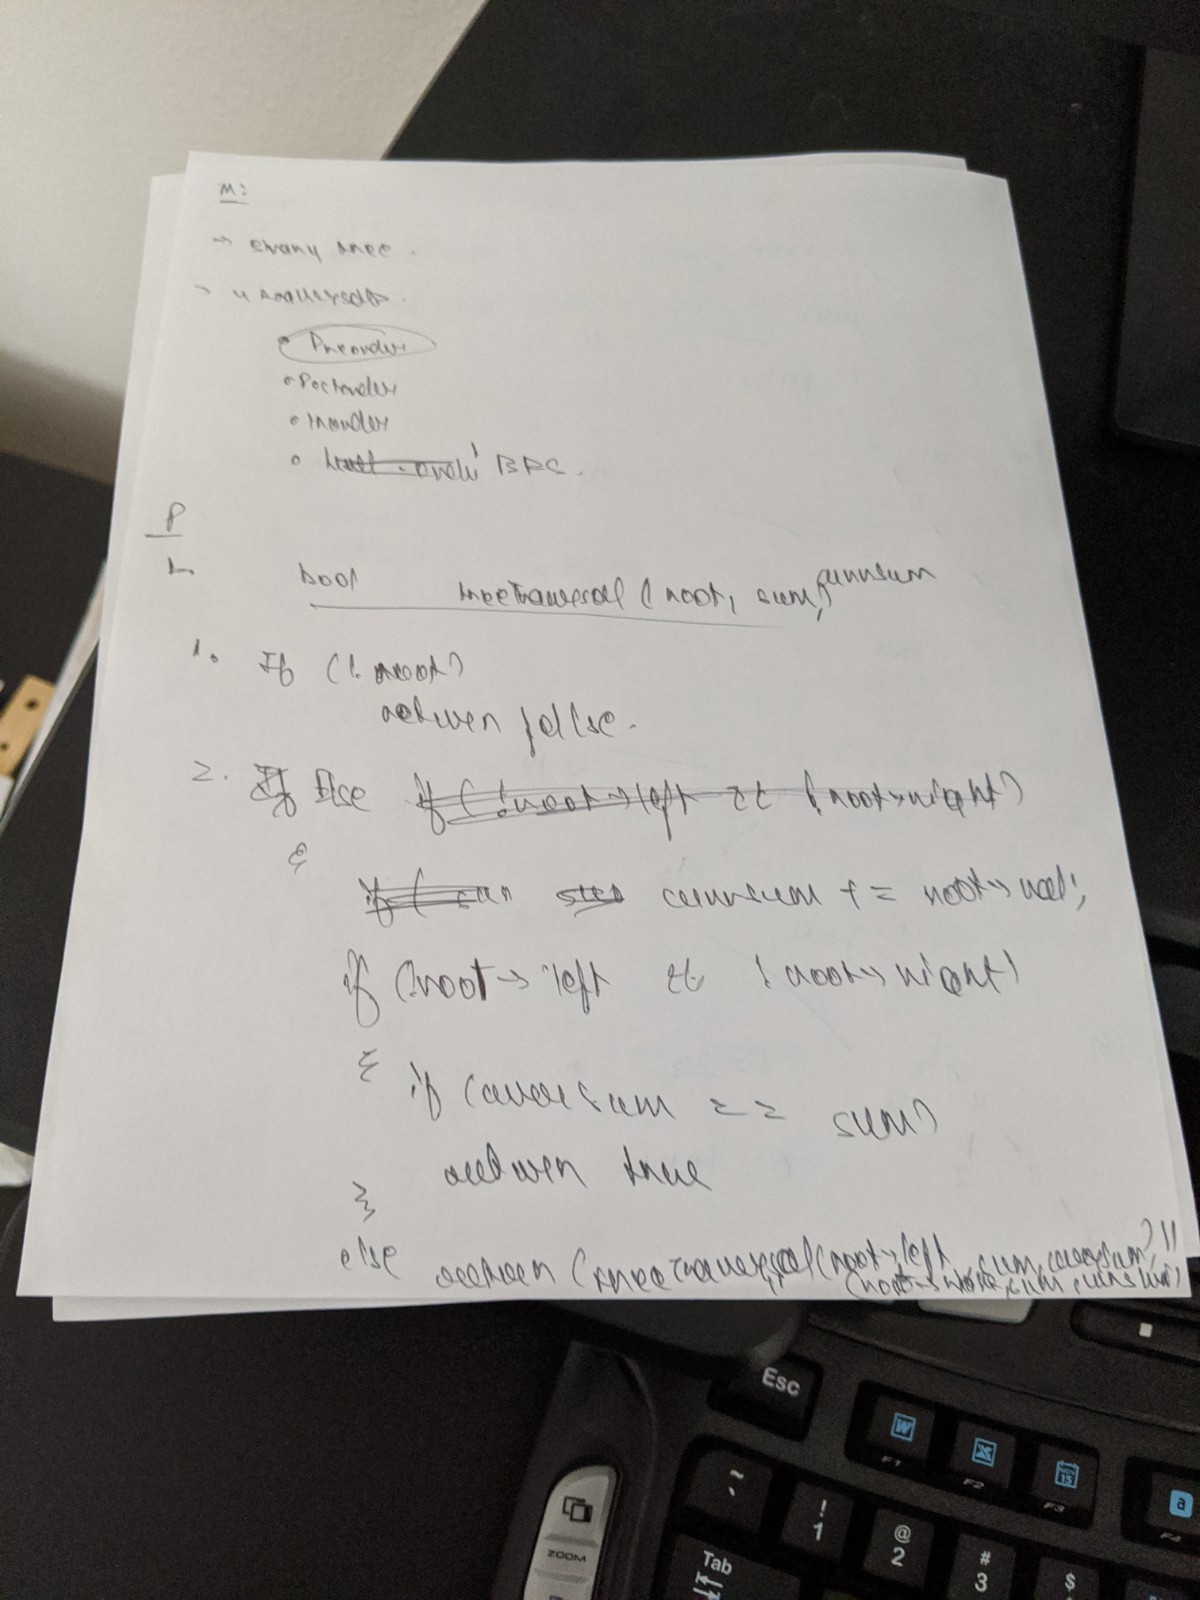 M:
→ Binary tree.
→ 4 traversals.
• Preorder
• Postorder
• Inorder
• Level-order BFS.
P
1.
bool treeTraversal (root, sum, currsum
1. If (!root)
return false.
2. If Else if (!root→left && !root→right)
{
if ( curr currsum += root→val;
if (!root→left && !root→right)
{
if (currsum == sum)
return true
}
else return (treeTraversal(root→left, sum, currsum) ||
(root→right, sum, currsum)
Esc
W
X
a
F1
F2
F3
F4
NOV
15
~
`
!
1
@
2
#
3
$
ZOOM
Tab